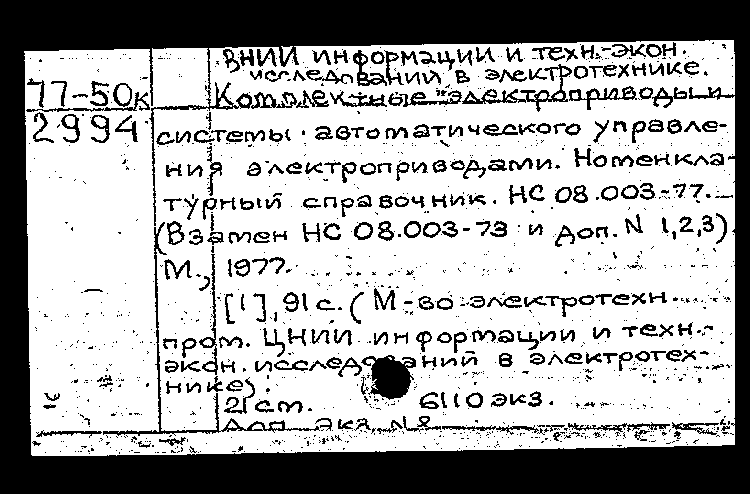 ВНИИ информации и техн.-экон.
исследований в электротехнике.
77-50к Комплектные электроприводы и
2994 системы автоматического управле-
ния электроприводами. Номенкла-
турный справочник. НС 08.003-77.
(Взамен НС 08.003-73 и доп. N 1,2,3)
М., 1977.
[1], 91 с. (М-во электротехн.
пром. ЦНИИ информации и техн.-
экон. исследований в электротех-
нике).
21 ст. 6110 экз.
Доп. экз. N 8